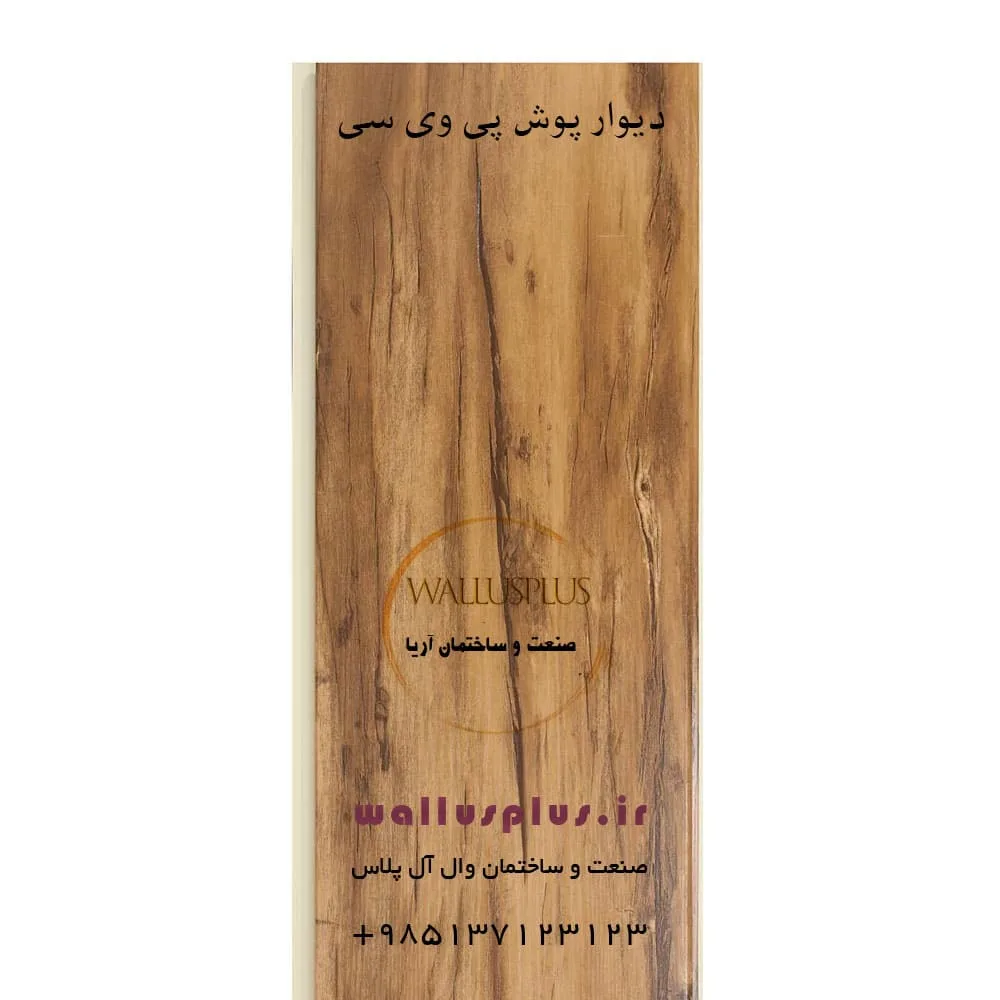 دیوار پوش پی وی سی
WALLUSPLUS
صنعت و ساختمان آریا
wallusplus.ir
صنعت و ساختمان وال آل پلاس
+۹۸۵۱۳۷۱۲۳۱۲۳